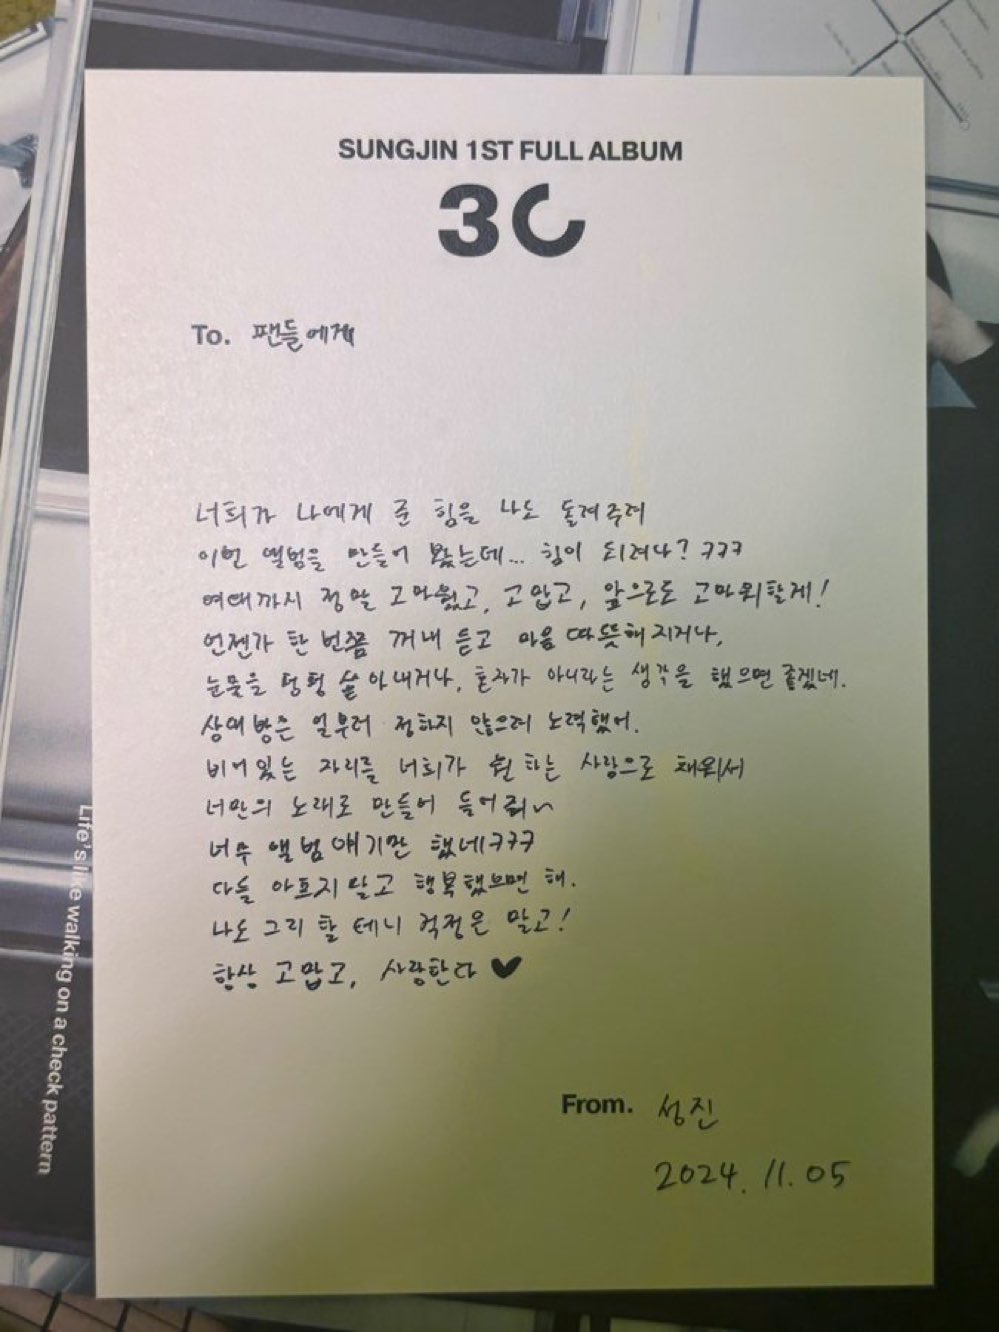 SUNGJIN 1ST FULL ALBUM
30
To. 팬들에게
너희가 나에게 준 힘을 나도 돌려주려
이번 앨범을 만들어 봤는데... 힘이 되려나? ㅋㅋㅋ
여태까지 정말 고마웠고, 고맙고, 앞으로도 고마워할게!
언젠가 한 번쯤 꺼내 듣고 마음 따뜻해지거나,
눈물을 펑펑 쏟아내거나, 혼자가 아니라는 생각을 했으면 좋겠네.
상대방은 일부러 정하지 않으려 노력했어.
비어있는 자리를 너희가 원하는 사람으로 채워서
너만의 노래로 만들어 들어줘~
너무 앨범 얘기만 했네ㅋㅋㅋ
다들 아프지 말고 행복했으면 해.
나도 그리 할 테니 걱정은 말고!
항상 고맙고, 사랑한다 ♥
From. 성진
2024. 11. 05
Life's like walking on a check pattern